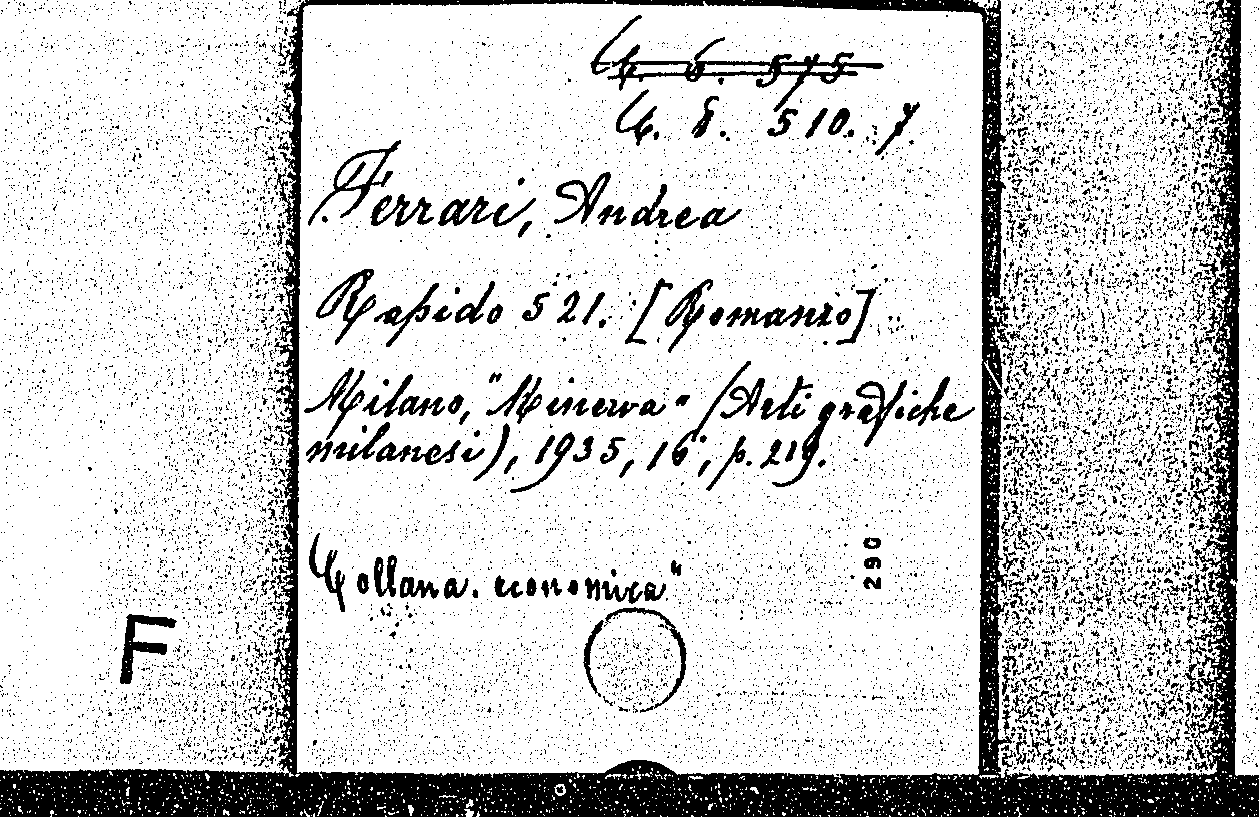 C. 6. 575
C. 8. 510. 7.
Ferrari, Andrea
Rapido 521. [Romanzo]
Milano, "Minerva" (Arti grafiche
milanesi), 1935, 16°, p. 219.
Collana. economica"
290
F